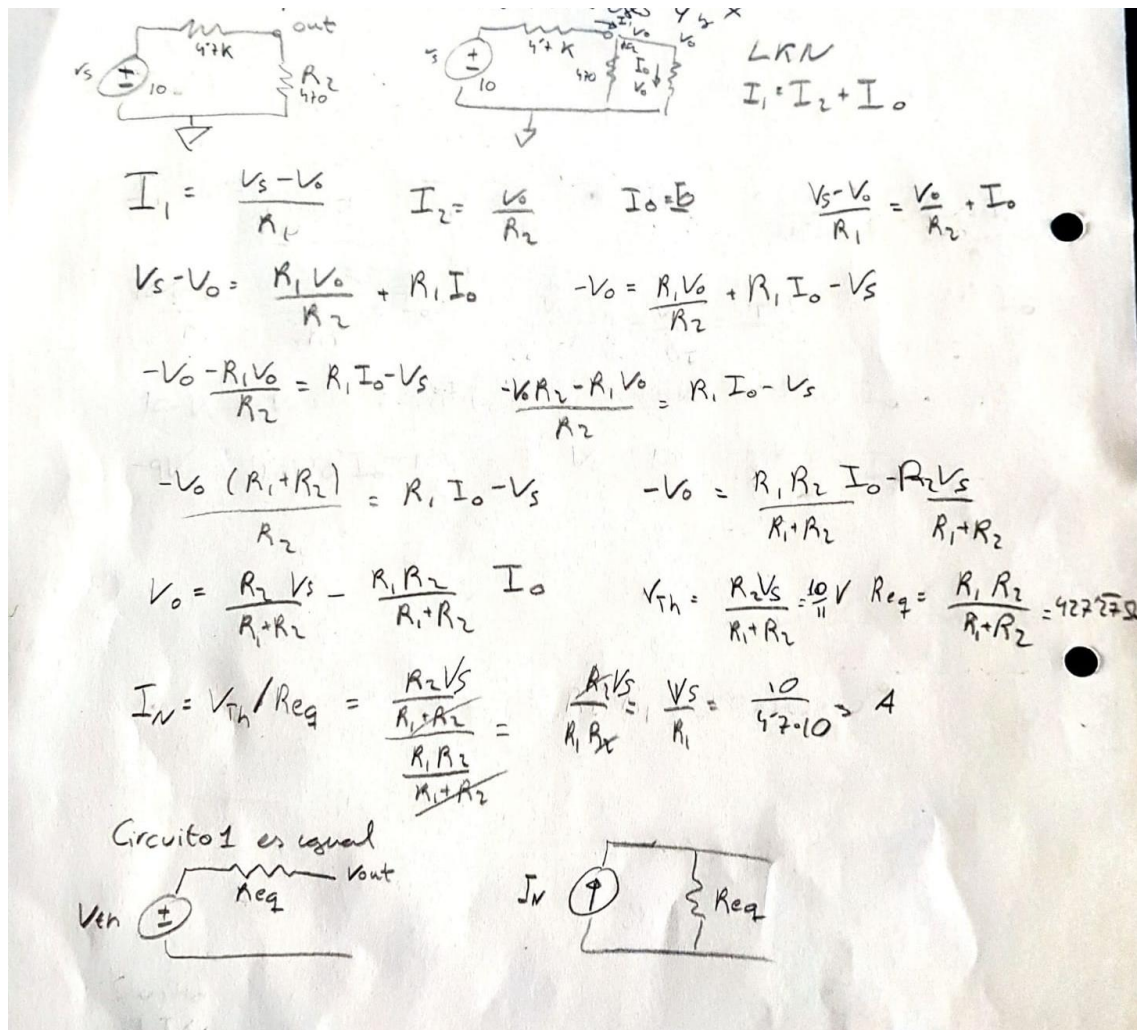 out
4'7K
Vs
10
R2
470
Vs
4'7 K
10
470
I1
Vo
I0
Vo
Vo
LKN
I1 = I2 + I0
I1 = (Vs - Vo)/R1    I2 = Vo/R2    (Vs - Vo)/R1 = Vo/R2 + I0
Vs - Vo = R1 Vo/R2 + R1 I0    -Vo = R1 Vo/R2 + R1 I0 - Vs
-Vo - R1 Vo/R2 = R1 I0 - Vs    (-Vo R2 - R1 Vo)/R2 = R1 I0 - Vs
-Vo (R1 + R2)/R2 = R1 I0 - Vs    -Vo = R1 R2/(R1 + R2) I0 - R2 Vs/(R1 + R2)
Vo = R2 Vs/(R1 + R2) - R1 R2/(R1 + R2) I0    VTh = R2 Vs/(R1 + R2) = 10/11 V    Req = R1 R2/(R1 + R2) = 427'27 Ω
IN = VTh/Req = (R2 Vs/(R1 + R2))/(R1 R2/(R1 + R2)) = R2 Vs/(R1 R2) = Vs/R1 = 10/(4'7·10³) A
Circuito 1 es igual
Vth
Req
Vout
IN
Req